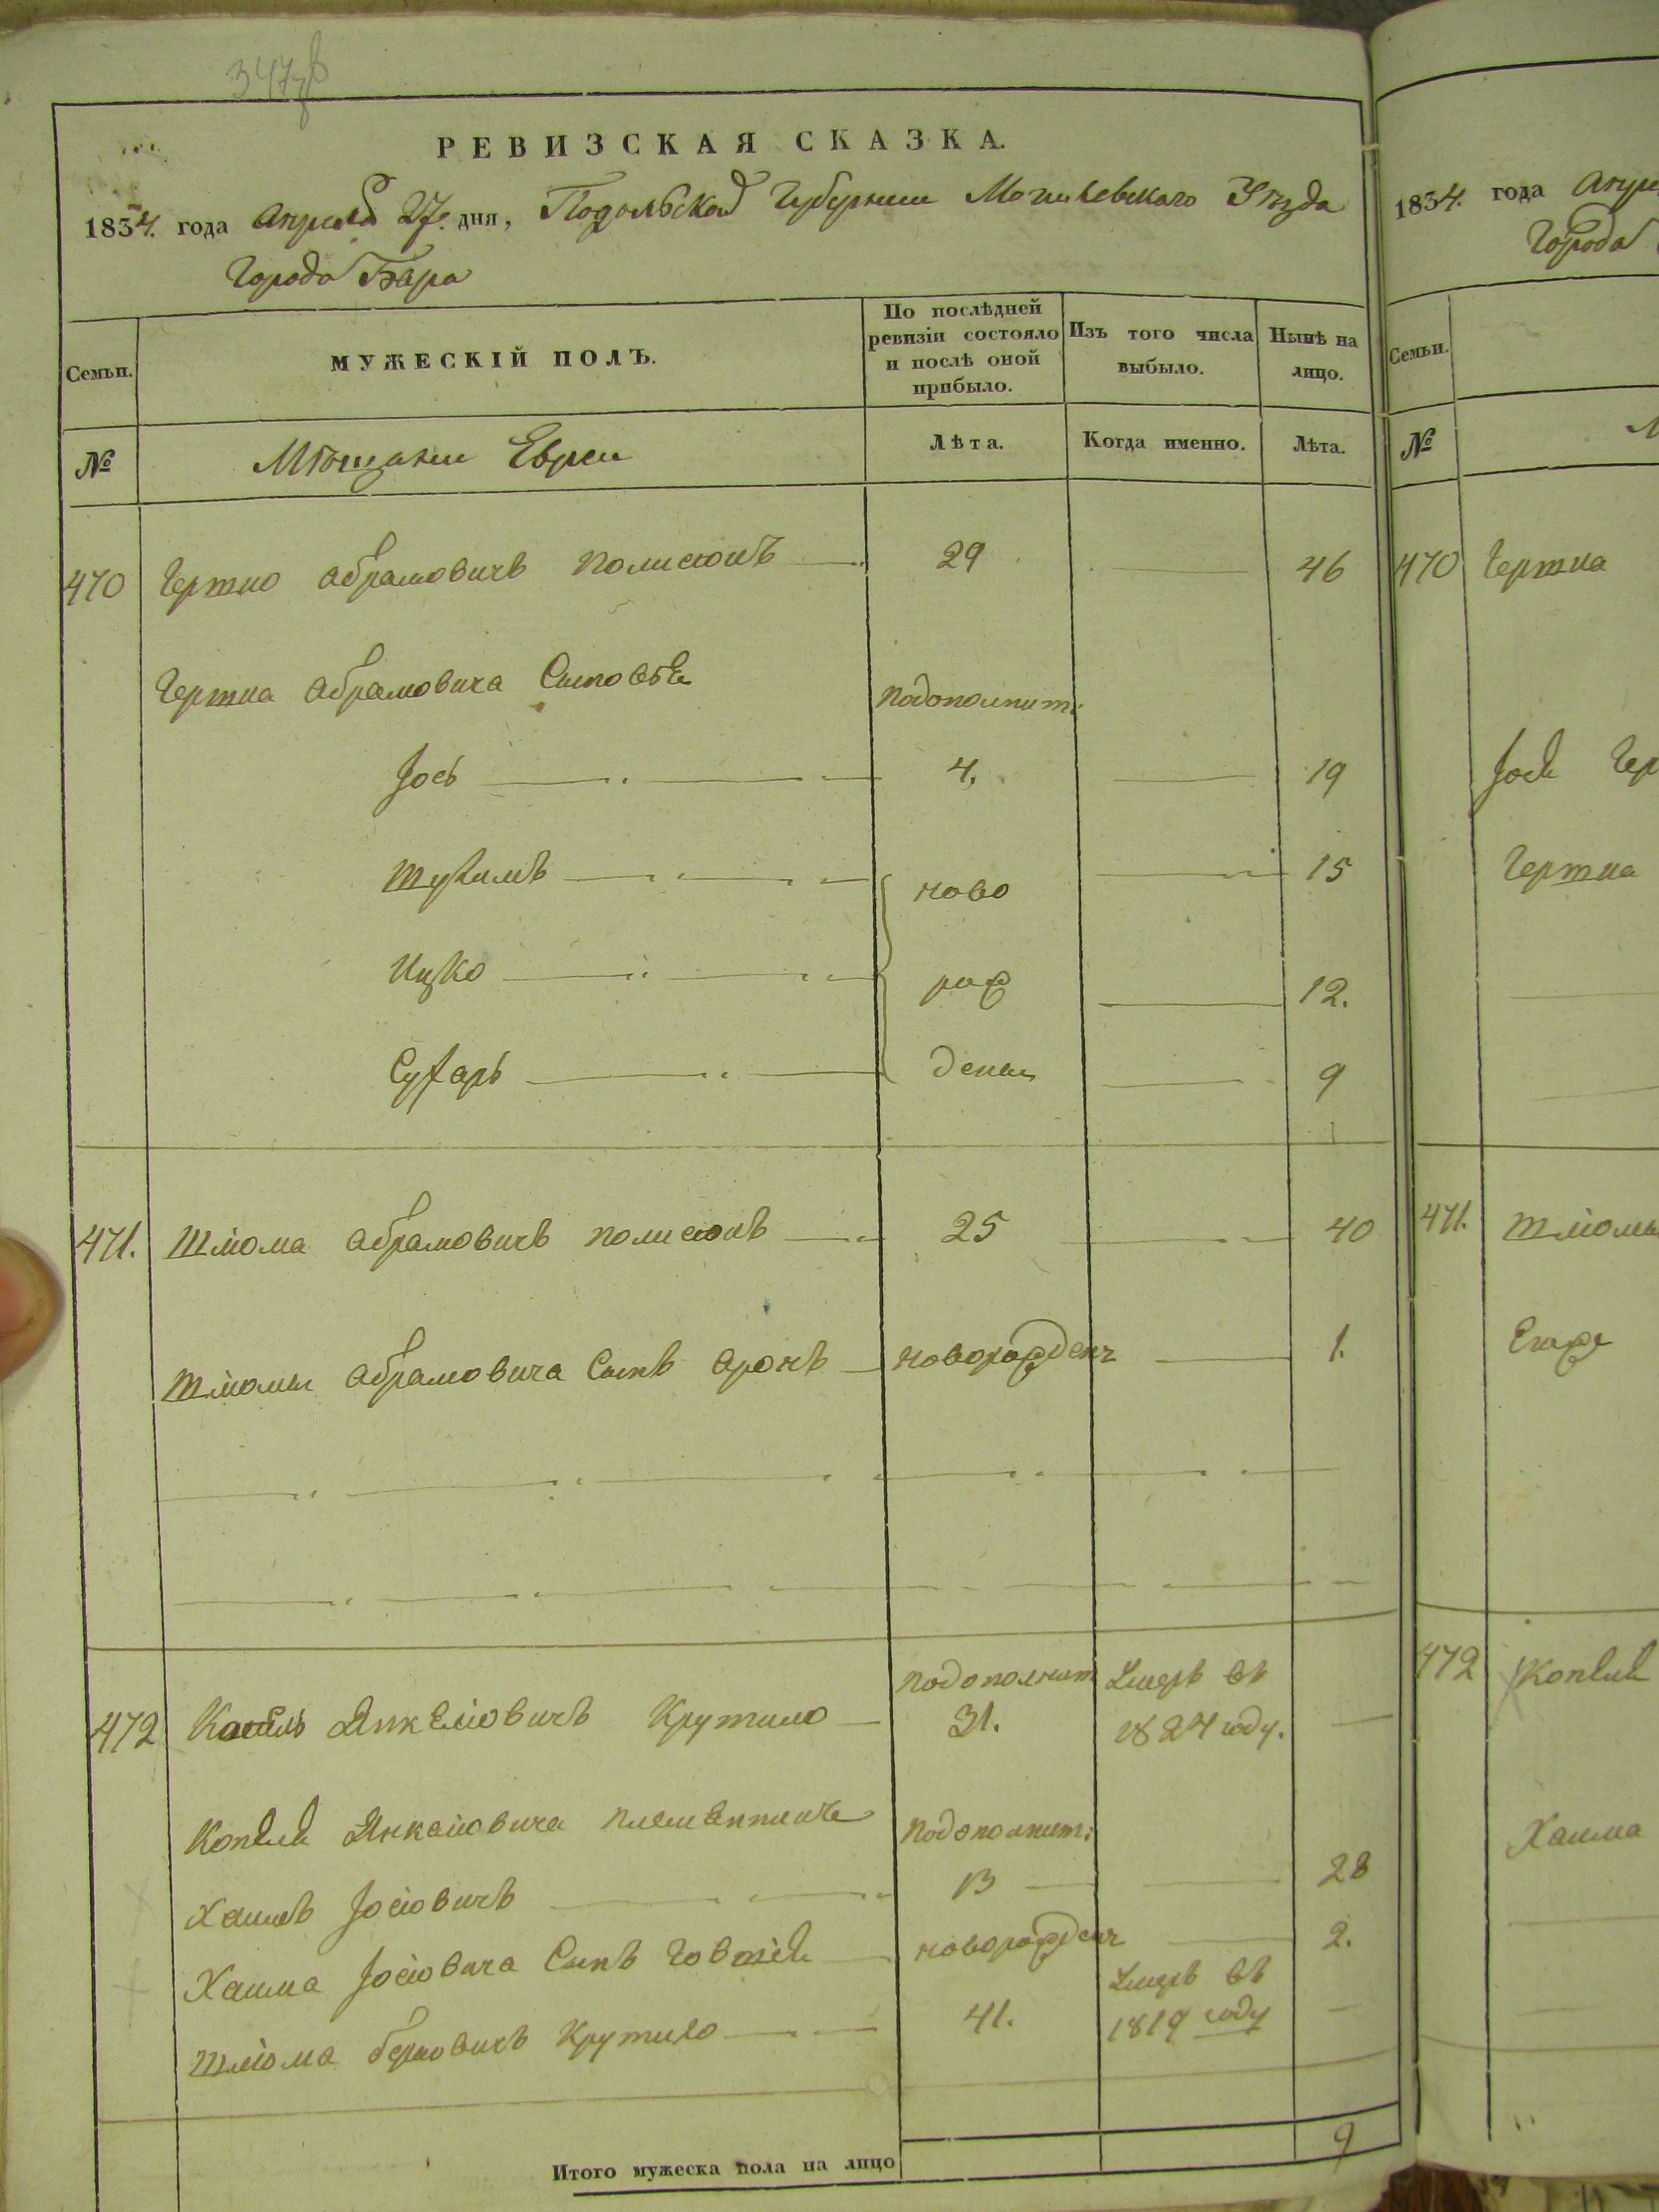 347
РЕВИЗСКАЯ СКАЗКА.
1834. года Апреля 27. дня, Подольской Губернии Могилевского Уезда
Города Бара
Семьи.
МУЖЕСКІЙ ПОЛЪ.
По послѣдней ревизіи состояло и послѣ оной прибыло.
Изъ того числа выбыло.
Нынѣ на лицо.
№ Мѣщани Евреи Лѣта. Когда именно. Лѣта.
470 Гершко Абрамовичъ Полисюкъ 29 46
Гершка Абрамовича Сыновья подополнит:
Іось 4. 19
15
Ицко 12.
9
новорожденн
471. Шліома Абрамовичъ полисюкъ 25 40
Шліомы Абрамовича Сынъ Аронъ новорожден 1.
подополнит Умеръ въ
472 Копель Янкеліовичъ Крутило 31. 1824 году.
Копеля Янкеліовича племянники подополнит:
Хаимъ Іосіовичъ 13 28
Хаима Іосіовича Сынъ новорожден 2.
Умеръ въ
Шліома Берковичъ Крутило 41. 1819 году
Итого мужеска пола на лицо 9
1834. года Апре
Города
Семьи.
№ М
470 Гершка
Гер
Гершка
471. Шліомы
472 Копеля
Хаима